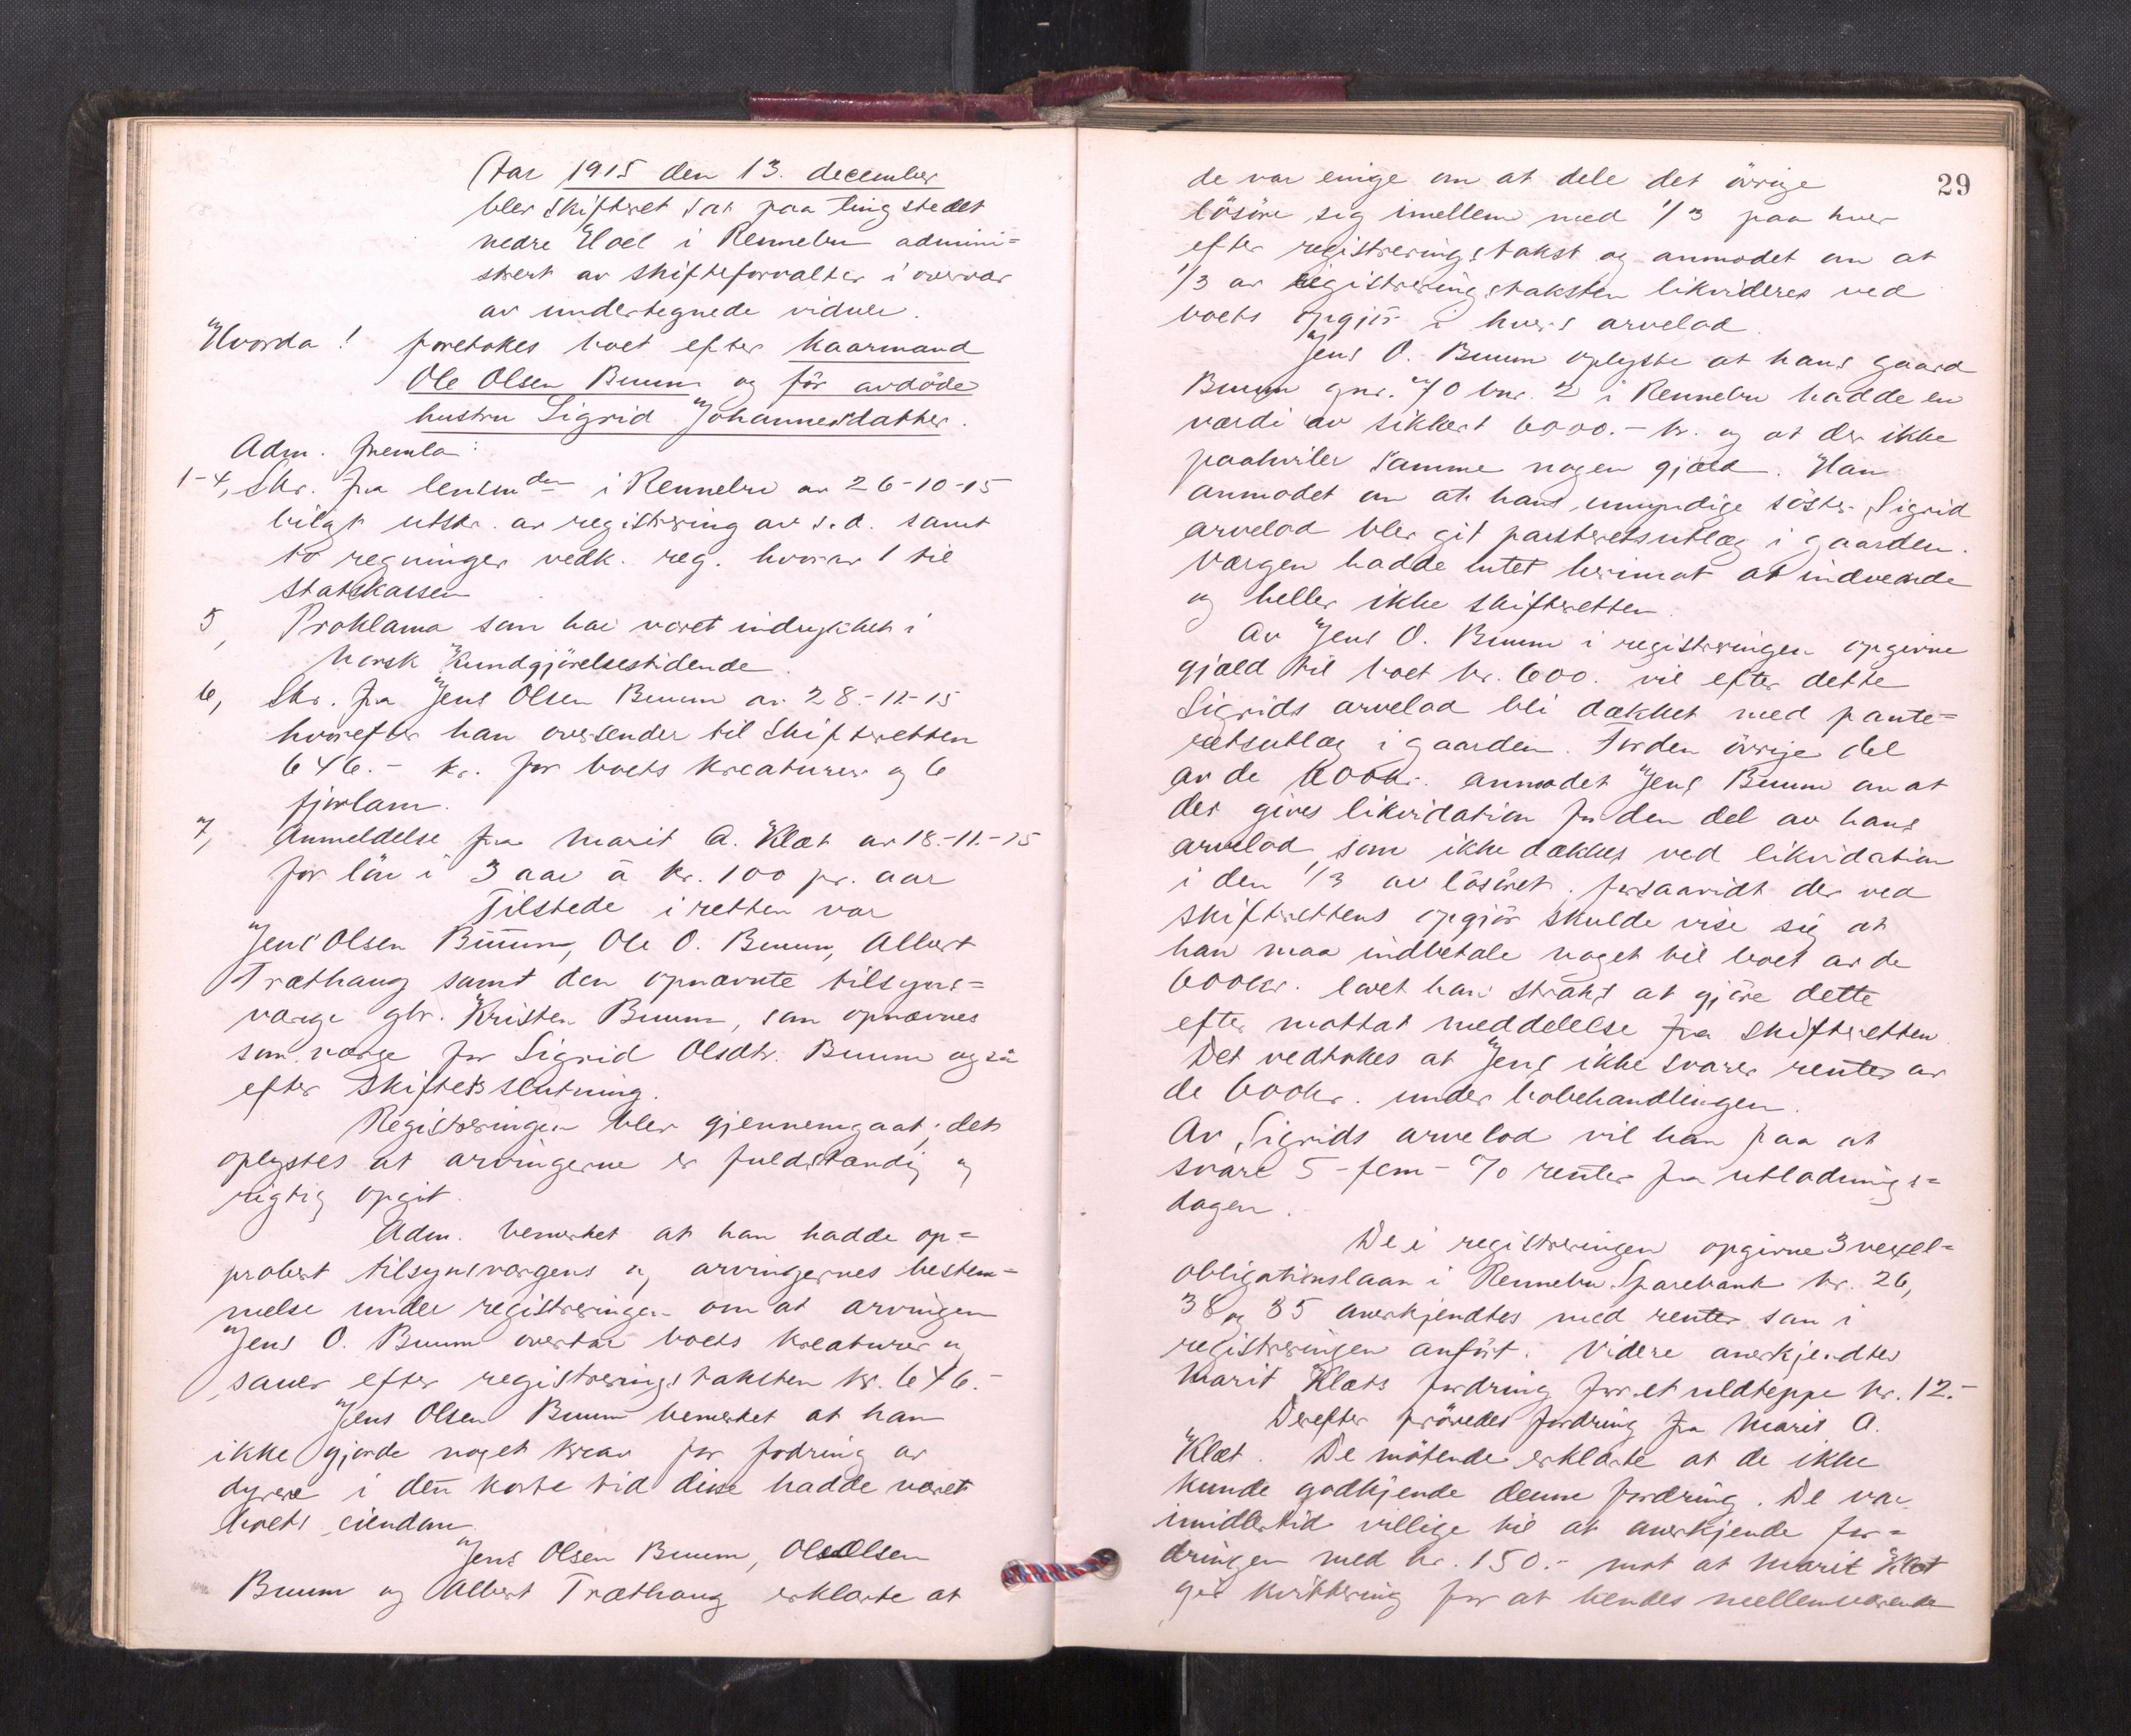 Aar 1915 den 13. december
blev skifteret sat paa tingstedet
nedre Hoel i Rennebu admini=
strert av skifteforvalter i overvær
av undertegnede vidner.
Hvorda! foretokes boet efter kaarmand
Ole Olsen Buum og før avdøde
hustru Sigrid Johannesdatter.
Adm. fremla:
1-4, Skr. fra lensmden i Rennebu av 26-10-15
bilagt utskr. av registrering av s.d. samt
to regninger vedk. reg. hvorav 1 til
statskassen
5, Proklama som har været indrykket i
Norsk Kundgjørelsestidende.
6, Skr. fra Jens Olsen Buum av 28.-11-15
hvorefter han oversender til skifteretten
646.- kr. for boets kreaturer og 6
fjorlam.
7, Anmeldelse fra Marit A. Klæt av 18.-11.-15
for løn i 3 aar á kr. 100 pr. aar
Tilstede i retten var
Jens Olsen Buum, Ole O. Buum, Albert
Træthaug samt den opnævnte tilsyns=
værge gbr. Kristen Buum, som opnævnes
som værge for Sigrid Olsdtr. Buum også
efter skiftets slutning.
Registreringen blev gjennemgaat; det
oplystes at arvingerne er fuldstændig og
rigtig opgit.
Adm. bemerket at han hadde op=
probert tilsynsværgens og arvingernes bestem=
melse under registreringen om at arvingen
Jens O. Buum overtar boets kreaturer og
sauer efter registreringstaksten kr. 646.-
Jens Olsen Buum bemerket at han
ikke gjorde noget krav for fodring av
dyrene i den korte tid disse hadde været
boets eiendom
Jens Olsen Buum, Ole Olsen
Buum og Albert Træthaug erklærte at
29
de var enige om at dele det øvrige
løsøre sig imellem med 1/3 paa hver
efter registreringstakst og anmodet om at
1/3 av registreringstaksten likvideres ved
boets opgjør i hvers arvelod.
Jens O. Buum oplyste at hans gaard
Buum gnr. 70 bnr. 2 i Rennebu hadde en
værdi av sikkert 6000.- kr. og at der ikke
paahviler samme nogen gjæld. Han
anmodet om at hans umyndige søster Sigrid
arvelod blev git panteretsutlæg i gaarden.
Værgen hadde intet herimot at indvende
og heller ikke skifteretten.
Av Jens O. Buum i registreringen opgivne
gjæld til boet kr. 600. vil efter dette
Sigrids arvelod bli dækket med pante=
retsutlæg i gaarden. For den øvrige del
av de 600 kr. anmodet Jens Buum om at
der gives likvidation for den del av hans
arvelod, som ikke dækkes ved likvidation
i den 1/3 av løsøret. forsaavidt der ved
skifterettens opgjør skulde vise sig at
han maa indbetale noget til boet av de
600 kr. lovet han straks at gjøre dette
efter mottat meddelelse fra skifteretten.
Det vedtokes at Jens ikke svarer renter av
de 600 kr. under bobehandlingen.
Av Sigrids arvelod vil han paa at
svare 5 - fem - % renter fra utlodnings=
dagen.
De i registreringen opgivne 3 vexel=
obligationslaan i Rennebu Sparebank kr. 26,
38 og 85 anerkjendtes med renter som i
registreringen anført. Videre anerkjendtes
Marit Klæts fordring for et uldteppe kr. 12.-
Derefter prøvedes fordring fra Marit A.
Klæt. De møtende erklærte at de ikke
kunde godkjende denne fordring. De var
imidlertid villige til at anerkjende for=
dringen med kr. 150.- mot at Marit Klæt
gir kvittering for at hendes mellemværende